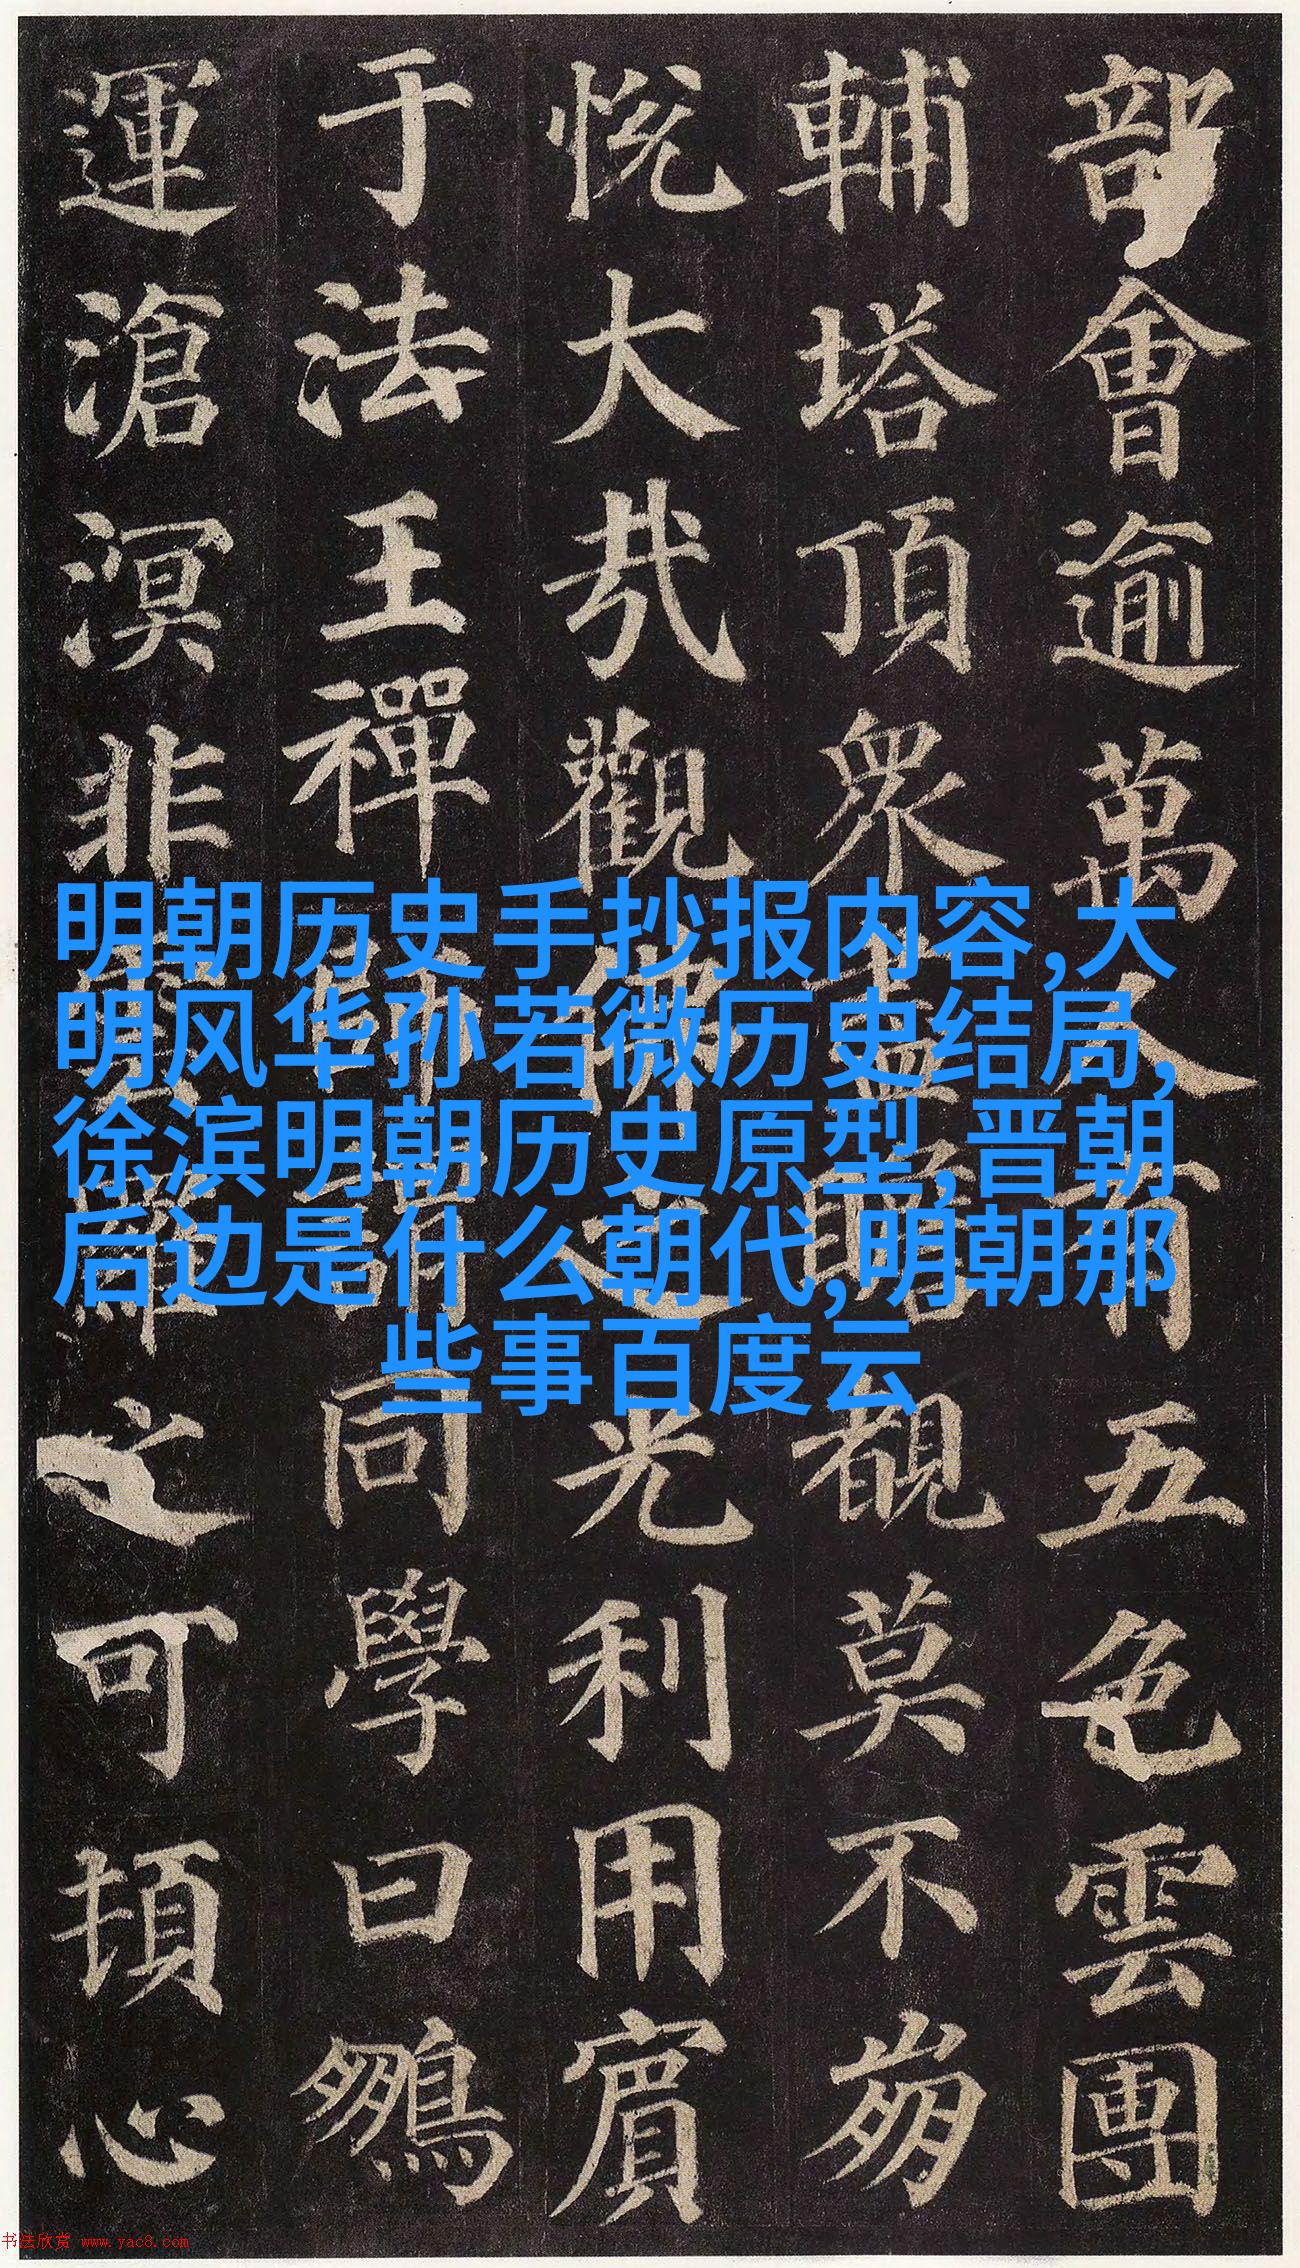 明朝历史手抄报内容,大
明风华孙若微历史结局,
徐滨明朝历史原型,晋朝
后边是什么朝代,明朝那
些事百度云
部會逾萬人有五色雲團
輔塔頂眾盡瞻覩莫不崩
悅大哉觀佛之光利用賓
于法王禪師謂同學曰鵬
運滄溟非雲羅之可頓心
书法欣赏 www.yac8.com